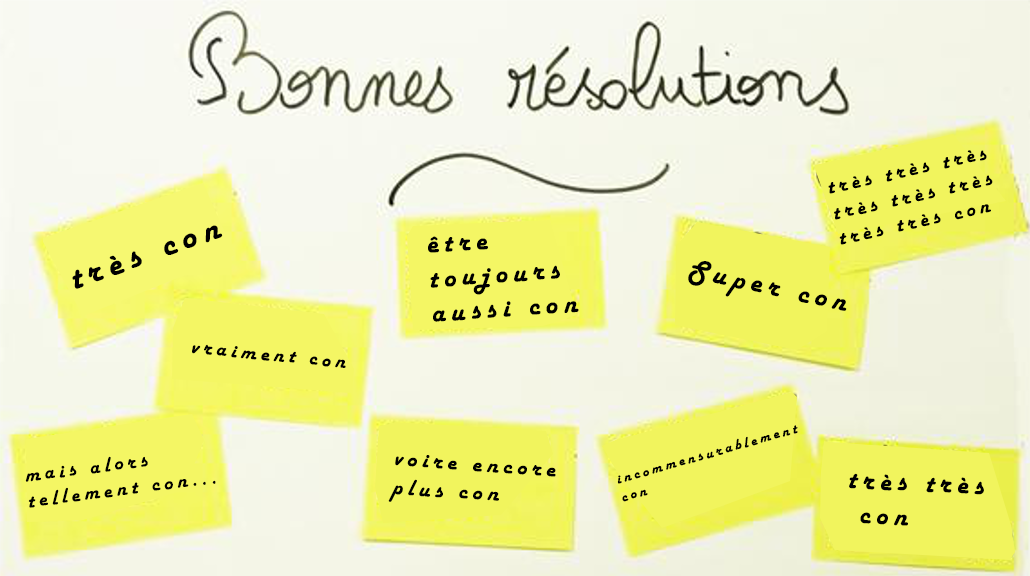 Bonnes résolutions
très con
être
toujours
aussi con
Super con
très très très
très très très
très très con
vraiment con
mais alors
tellement con...
voire encore
plus con
incommensurablement
con
très très
con